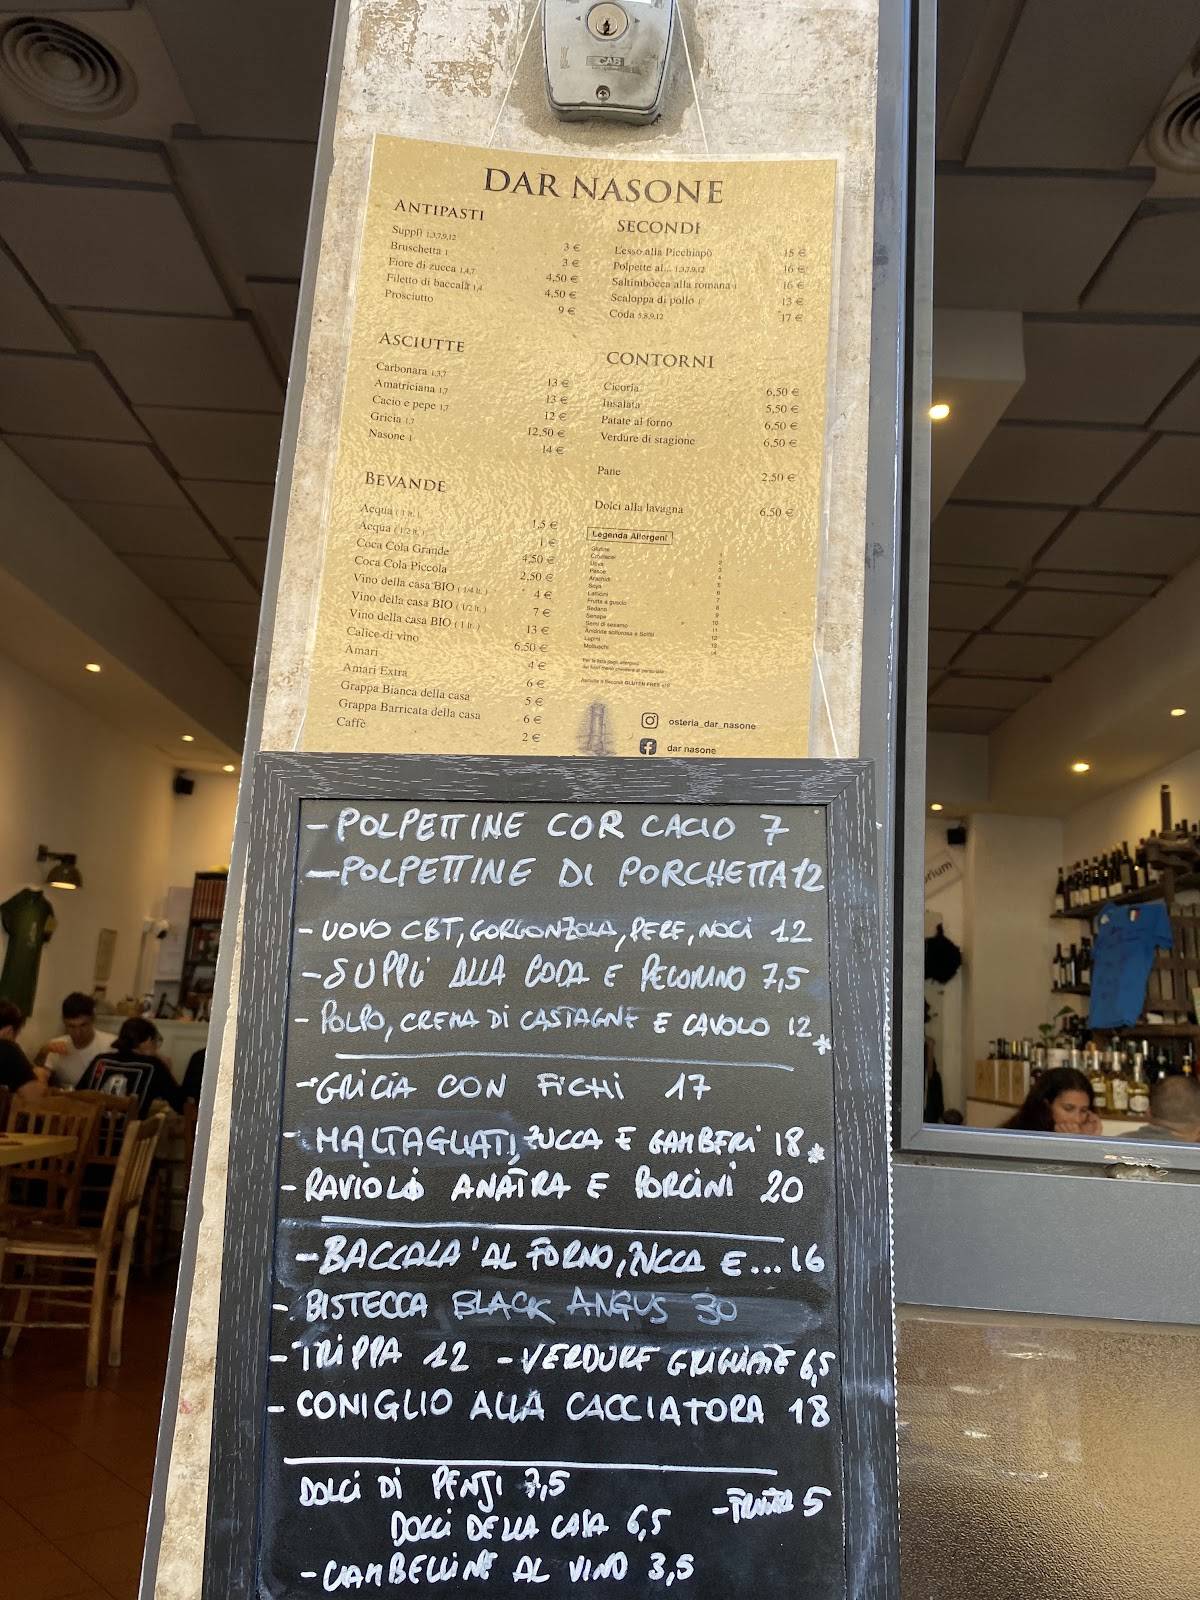 CAB
DAR NASONE
ANTIPASTI
Supplì 1,3,7,9,12 3 €
Bruschetta 1 3 €
Fiore di zucca 1,4,7 4,50 €
Filetto di baccalà 1,4 4,50 €
Prosciutto 9 €
ASCIUTTE
Carbonara 1,3,7 13 €
Amatriciana 1,7 13 €
Cacio e pepe 1,7 12 €
Gricia 1,7 12,50 €
Nasone 1 14 €
BEVANDE
Acqua ( 1 lt. ) 1,5 €
Acqua ( 1/2 lt. ) 1 €
Coca Cola Grande 4,50 €
Coca Cola Piccola 2,50 €
Vino della casa BIO ( 1/4 lt. ) 4 €
Vino della casa BIO ( 1/2 lt. ) 7 €
Vino della casa BIO ( 1 lt. ) 13 €
Calice di vino 6,50 €
Amari 4 €
Amari Extra 6 €
Grappa Bianca della casa 5 €
Grappa Barricata della casa 6 €
Caffè 2 €
SECONDI
Lesso alla Picchiapò 15 €
Polpette al... 1,3,7,9,12 16 €
Saltimbocca alla romana 1 16 €
Scaloppa di pollo 1 13 €
Coda 5,8,9,12 17 €
CONTORNI
Cicoria 6,50 €
Insalata 5,50 €
Patate al forno 6,50 €
Verdure di stagione 6,50 €
Pane 2,50 €
Dolci alla lavagna 6,50 €
Legenda Allergeni
Glutine 1
Crostacei 2
Uova 3
Pesce 4
Arachidi 5
Soya 6
Latticini 7
Frutta a guscio 8
Sedano 9
Senape 10
Semi di sesamo 11
Anidride solforosa e Solfiti 12
Lupini 13
Molluschi 14
osteria_dar_nasone
dar nasone
- POLPETTINE COR CACIO 7
- POLPETTINE DI PORCHETTA 12
- UOVO CBT, GORGONZOLA, PERE, NOCI 12
- SUPPLì ALLA CODA E PECORINO 7,5
- POLPO, CREMA DI CASTAGNE E CAVOLO 12 *
- GRICIA CON FICHI 17
- MALTAGLIATI, ZUCCA E GAMBERI 18 *
- RAVIOLI ANATRA E PORCINI 20
- BACCALA' AL FORNO, ZUCCA E... 16
- BISTECCA BLACK ANGUS 30
- TRIPPA 12 - VERDURE GRIGLIATE 6,5
- CONIGLIO ALLA CACCIATORA 18
DOLCI DI PENSI 7,5
DOLCI DELLA CASA 6,5 - FRUTTA 5
- CIAMBELLINE AL VINO 3,5